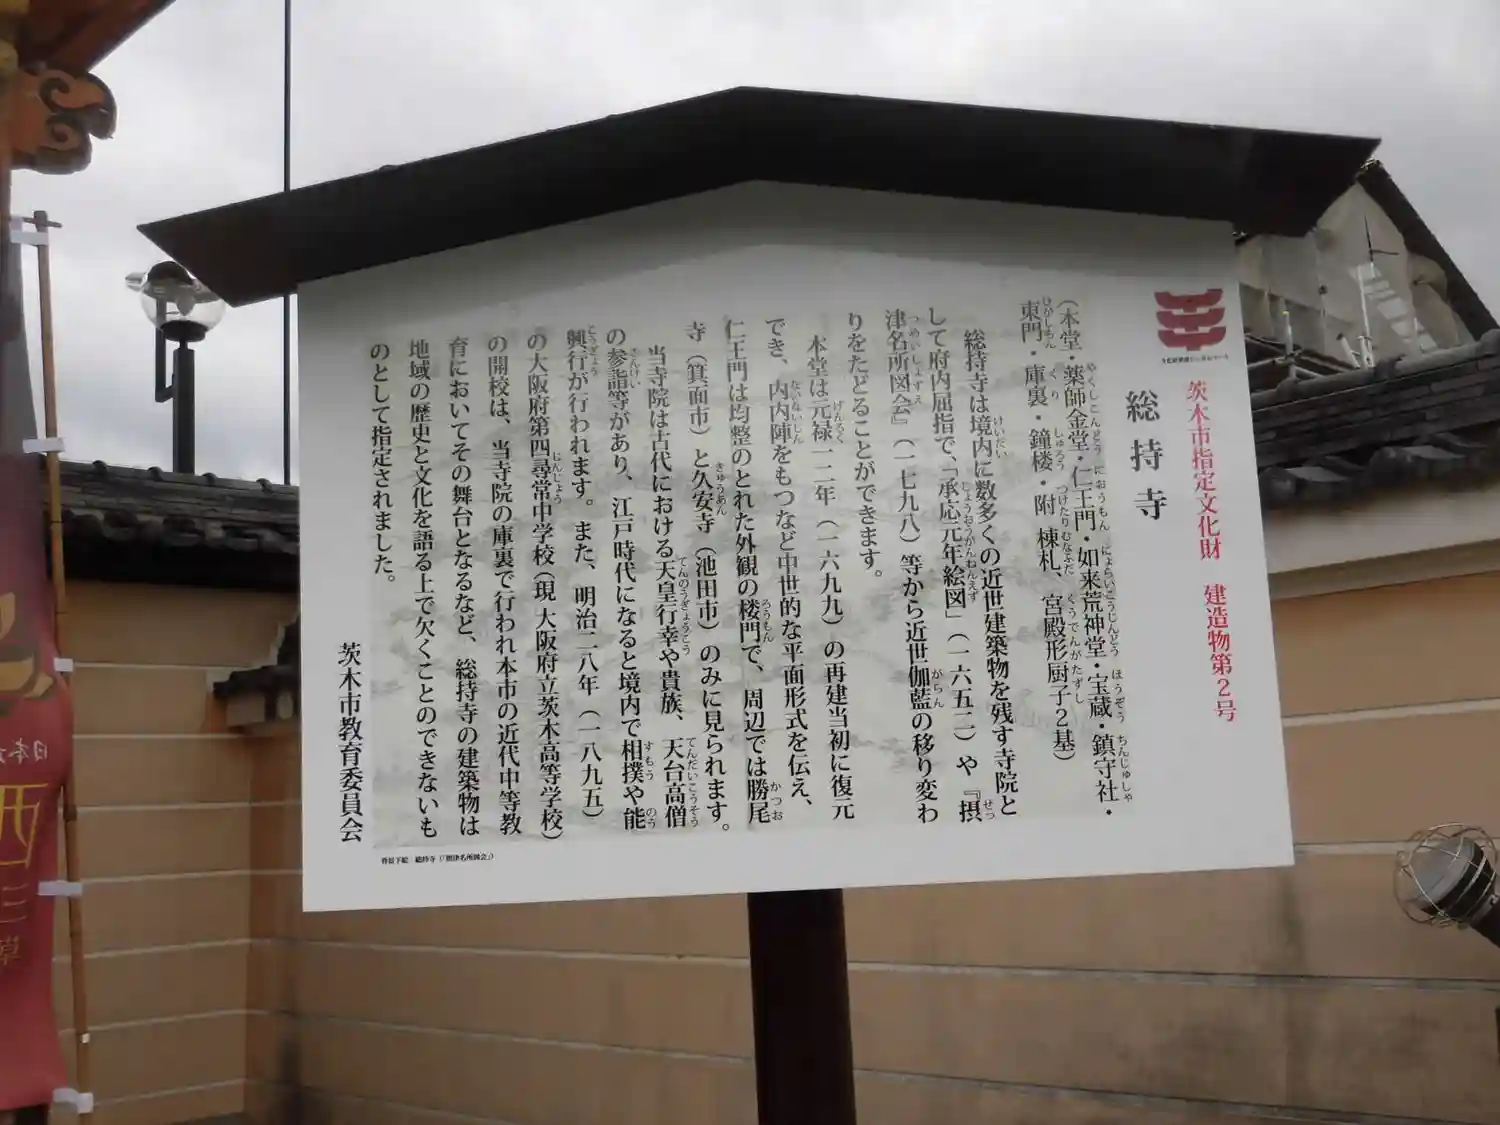 茨木市指定文化財 建造物第2号
総持寺
(本堂・薬師金堂・仁王門・如来荒神堂・宝蔵・鎮守社・
東門・庫裏・鐘楼・附 棟札、宮殿形厨子2基)
総持寺は境内に数多くの近世建築物を残す寺院と
して府内屈指で、「承応元年絵図」(一六五二)や『摂
津名所図会』(一七九八)等から近世伽藍の移り変わ
りをたどることができます。
本堂は元禄一二年(一六九九)の再建当初に復元
でき、内内陣をもつなど中世的な平面形式を伝え、
仁王門は均整のとれた外観の楼門で、周辺では勝尾
寺(箕面市)と久安寺(池田市)のみに見られます。
当寺院は古代における天皇行幸や貴族、天台高僧
の参詣等があり、江戸時代になると境内で相撲や能
興行が行われます。また、明治二八年(一八九五)
の大阪府第四尋常中学校(現 大阪府立茨木高等学校)
の開校は、当寺院の庫裏で行われ本市の近代中等教
育においてその舞台となるなど、総持寺の建築物は
地域の歴史と文化を語る上で欠くことのできないも
のとして指定されました。
茨木市教育委員会
背景下絵 総持寺(『摂津名所図会』)
日本
西
三